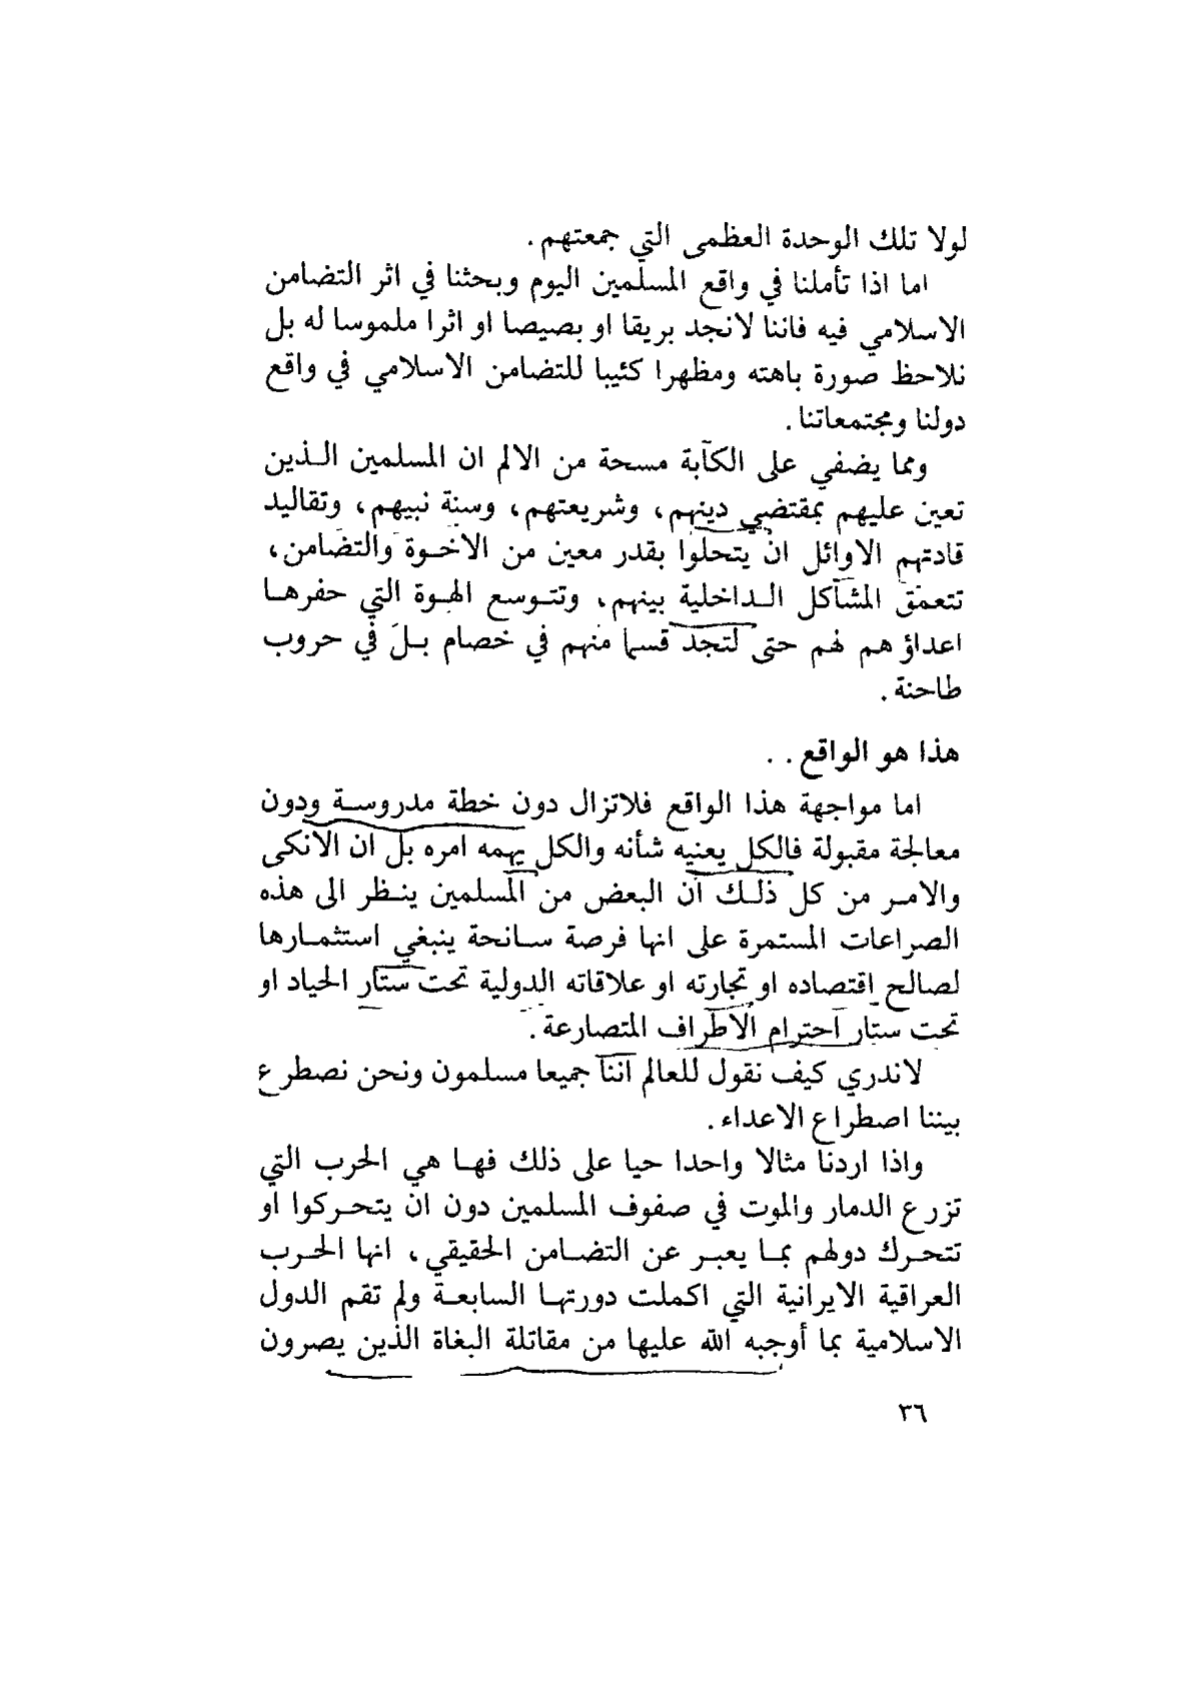 لولا تلك الوحدة العظمى التي جمعتهم .
اما اذا تأملنا في واقع المسلمين اليوم وبحثنا في اثر التضامن
الاسلامي فيه فاننا لانجد بريقا او بصيصا او اثرا ملموسا له بل
نلاحظ صورة باهته ومظهرا كئيبا للتضامن الاسلامي في واقع
دولنا ومجتمعاتنا .
ومما يضفي على الكآبة مسحة من الالم ان المسلمين الـذين
تعين عليهم بمقتضي دينهم ، وشريعتهم ، وسنة نبيهم ، وتقاليد
قادتهم الاوائل ان يتحلوا بقدر معين من الاخـوة والتضامن ،
تتعمق المشاكل الـداخلية بينهم ، وتتـوسع الهوة التي حفرهـا
اعداؤ هم لهم حتى لتجد قسما منهم في خصام بـل في حروب
طاحنة .
هذا هو الواقع . .
اما مواجهة هذا الواقع فلاتزال دون خطة مدروسـة ودون
معالجة مقبولة فالكل يعنيه شأنه والكل يهمه امره بل ان الانكى
والامـر من كل ذلـك أن البعض من المسلمين ينـظر الى هذه
الصراعات المستمرة على انها فرصة سـانحة ينبغي استثمـارها
لصالح اقتصاده او تجارته او علاقاته الدولية تحت ستار الحياد او
تحت ستار احترام الاطراف المتصارعة .
لاندري كيف نقول للعالم اننا جميعا مسلمون ونحن نصطر ع
بيننا اصطراع الاعداء .
واذا اردنا مثالا واحدا حيا على ذلك فهـا هي الحرب التي
تزرع الدمار والموت في صفوف المسلمين دون ان يتحـركوا او
تتحـرك دولهم بمـا يعبـر عن التضـامن الحقيقي ، انها الحـرب
العراقية الايرانية التي اكملت دورتهـا السابعـة ولم تقم الدول
الاسلامية بما أوجبه الله عليها من مقاتلة البغاة الذين يصرون
٣٦